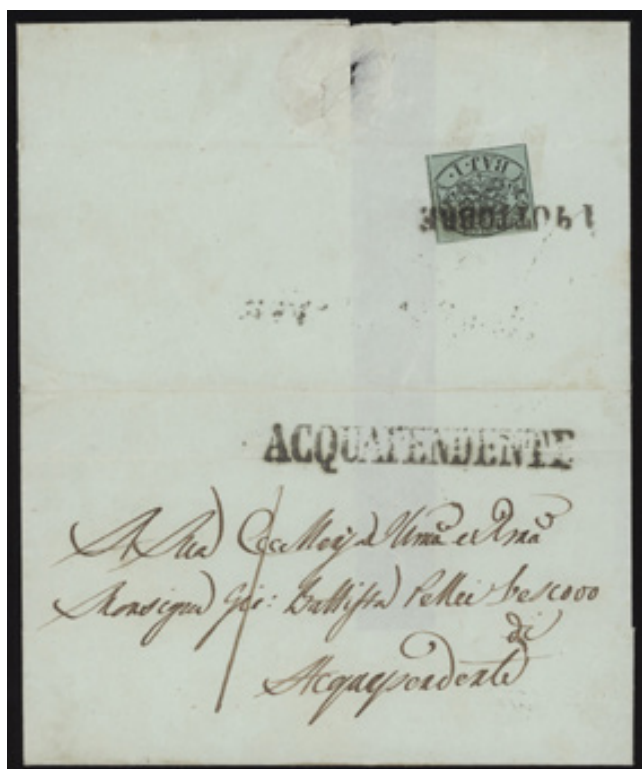 BAJ. 1.
19 OTTOBRE
ACQUAPENDENTE
A Sua Ecc
Monsignor Gio: Battista Pellei Vescovo
di
Acquapendente